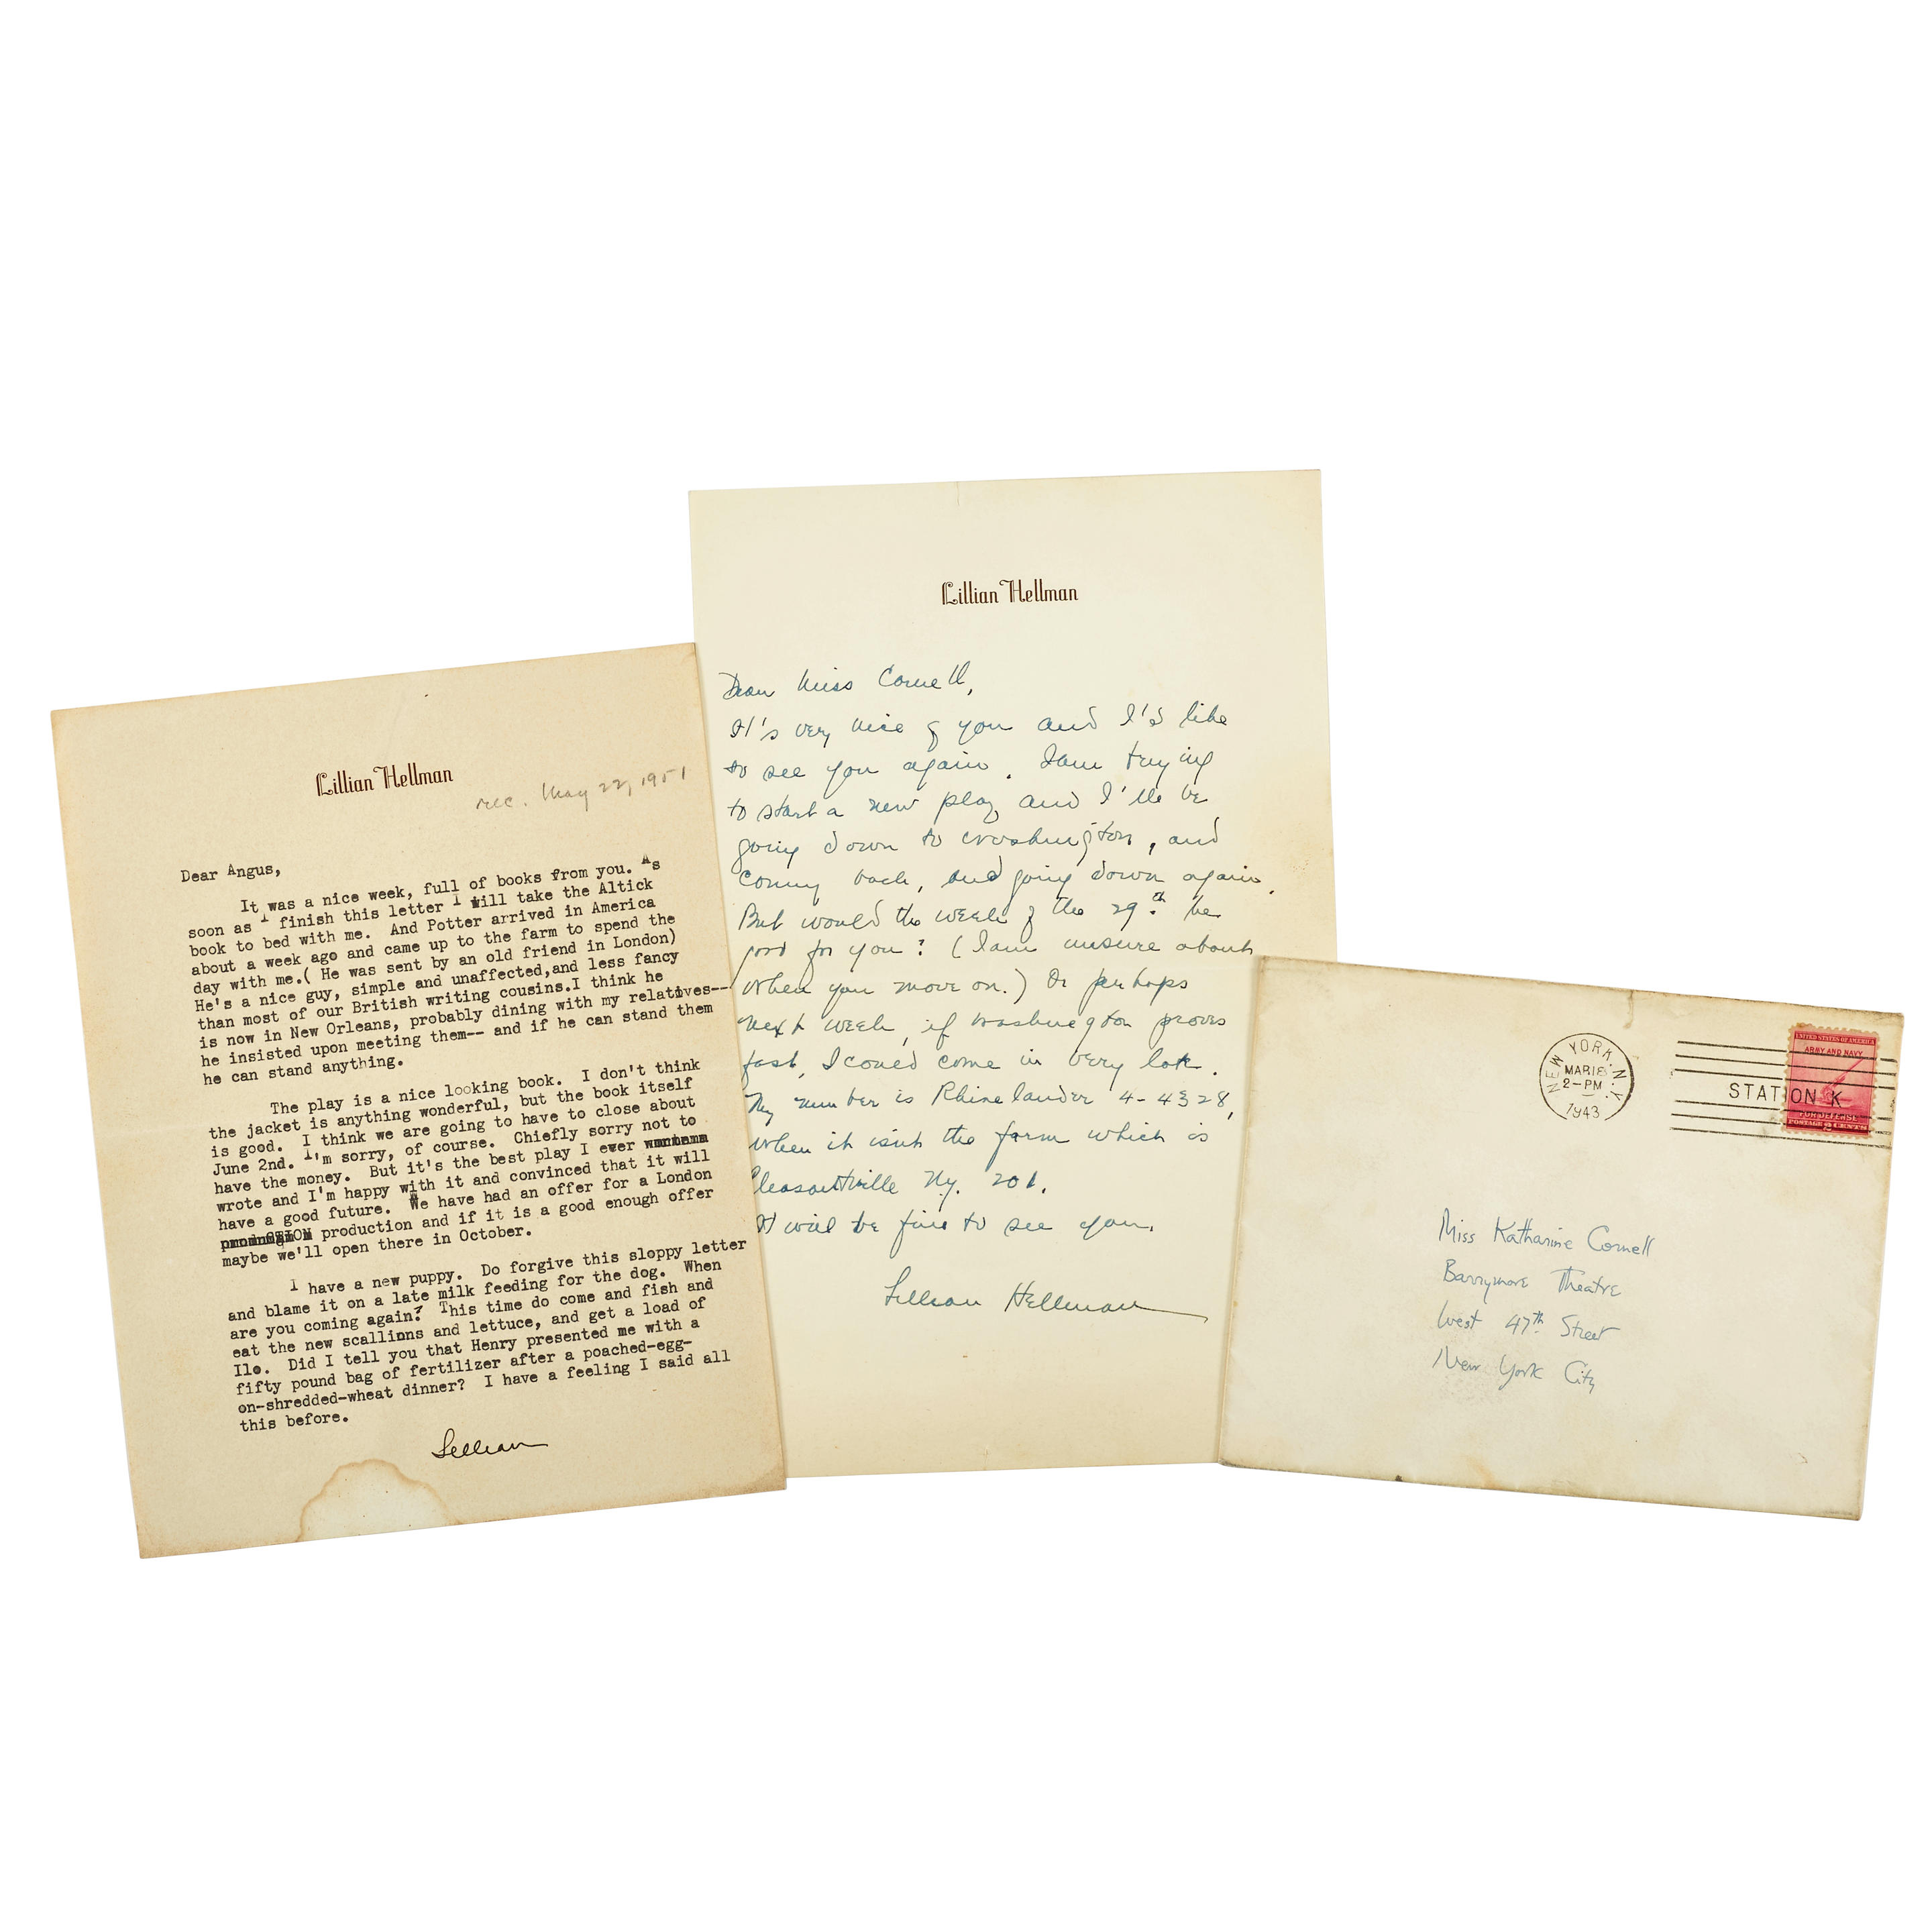 Lillian Hellman
rec. May 22, 1951
Dear Angus,
It was a nice week, full of books from you. As
soon as I finish this letter I will take the Altick
book to bed with me. And Potter arrived in America
about a week ago and came up to the farm to spend the
day with me.( He was sent by an old friend in London)
He's a nice guy, simple and unaffected,and less fancy
than most of our British writing cousins.I think he
is now in New Orleans, probably dining with my relatives--
he insisted upon meeting them-- and if he can stand them
he can stand anything.
The play is a nice looking book. I don't think
the jacket is anything wonderful, but the book itself
is good. I think we are going to have to close about
June 2nd. I'm sorry, of course. Chiefly sorry not to
have the money. But it's the best play I ever
wrote and I'm happy with it and convinced that it will
have a good future. We have had an offer for a London
production and if it is a good enough offer
maybe we'll open there in October.
I have a new puppy. Do forgive this sloppy letter
and blame it on a late milk feeding for the dog. When
are you coming again? This time do come and fish and
eat the new scallinns and lettuce, and get a load of
Ilo. Did I tell you that Henry presented me with a
fifty pound bag of fertilizer after a poached-egg-
on-shredded-wheat dinner? I have a feeling I said all
this before.
Lillian
Lillian Hellman
Dear Miss Cornell,
It's very nice of you and I'd like
to see you again. I am trying
to start a new play and I'll be
going down to Washington, and
coming back, and going down again.
But would the week of the 29th be
good for you? (I am unsure about
when you move on.) Or perhaps
next week, if Washington proves
fast, I could come in very late.
My number is Rhinelander 4-4328,
when it isn't the farm which is
Pleasantville Ny. 201.
It will be fine to see you.
Lillian Hellman
NEW YORK, N.Y.
MAR 18
2-PM
1943
STATION K
UNITED STATES OF AMERICA
ARMY AND NAVY
FOR DEFENSE
POSTAGE 2 CENTS
Miss Katharine Cornell
Barrymore Theatre
West 47th Street
New York City